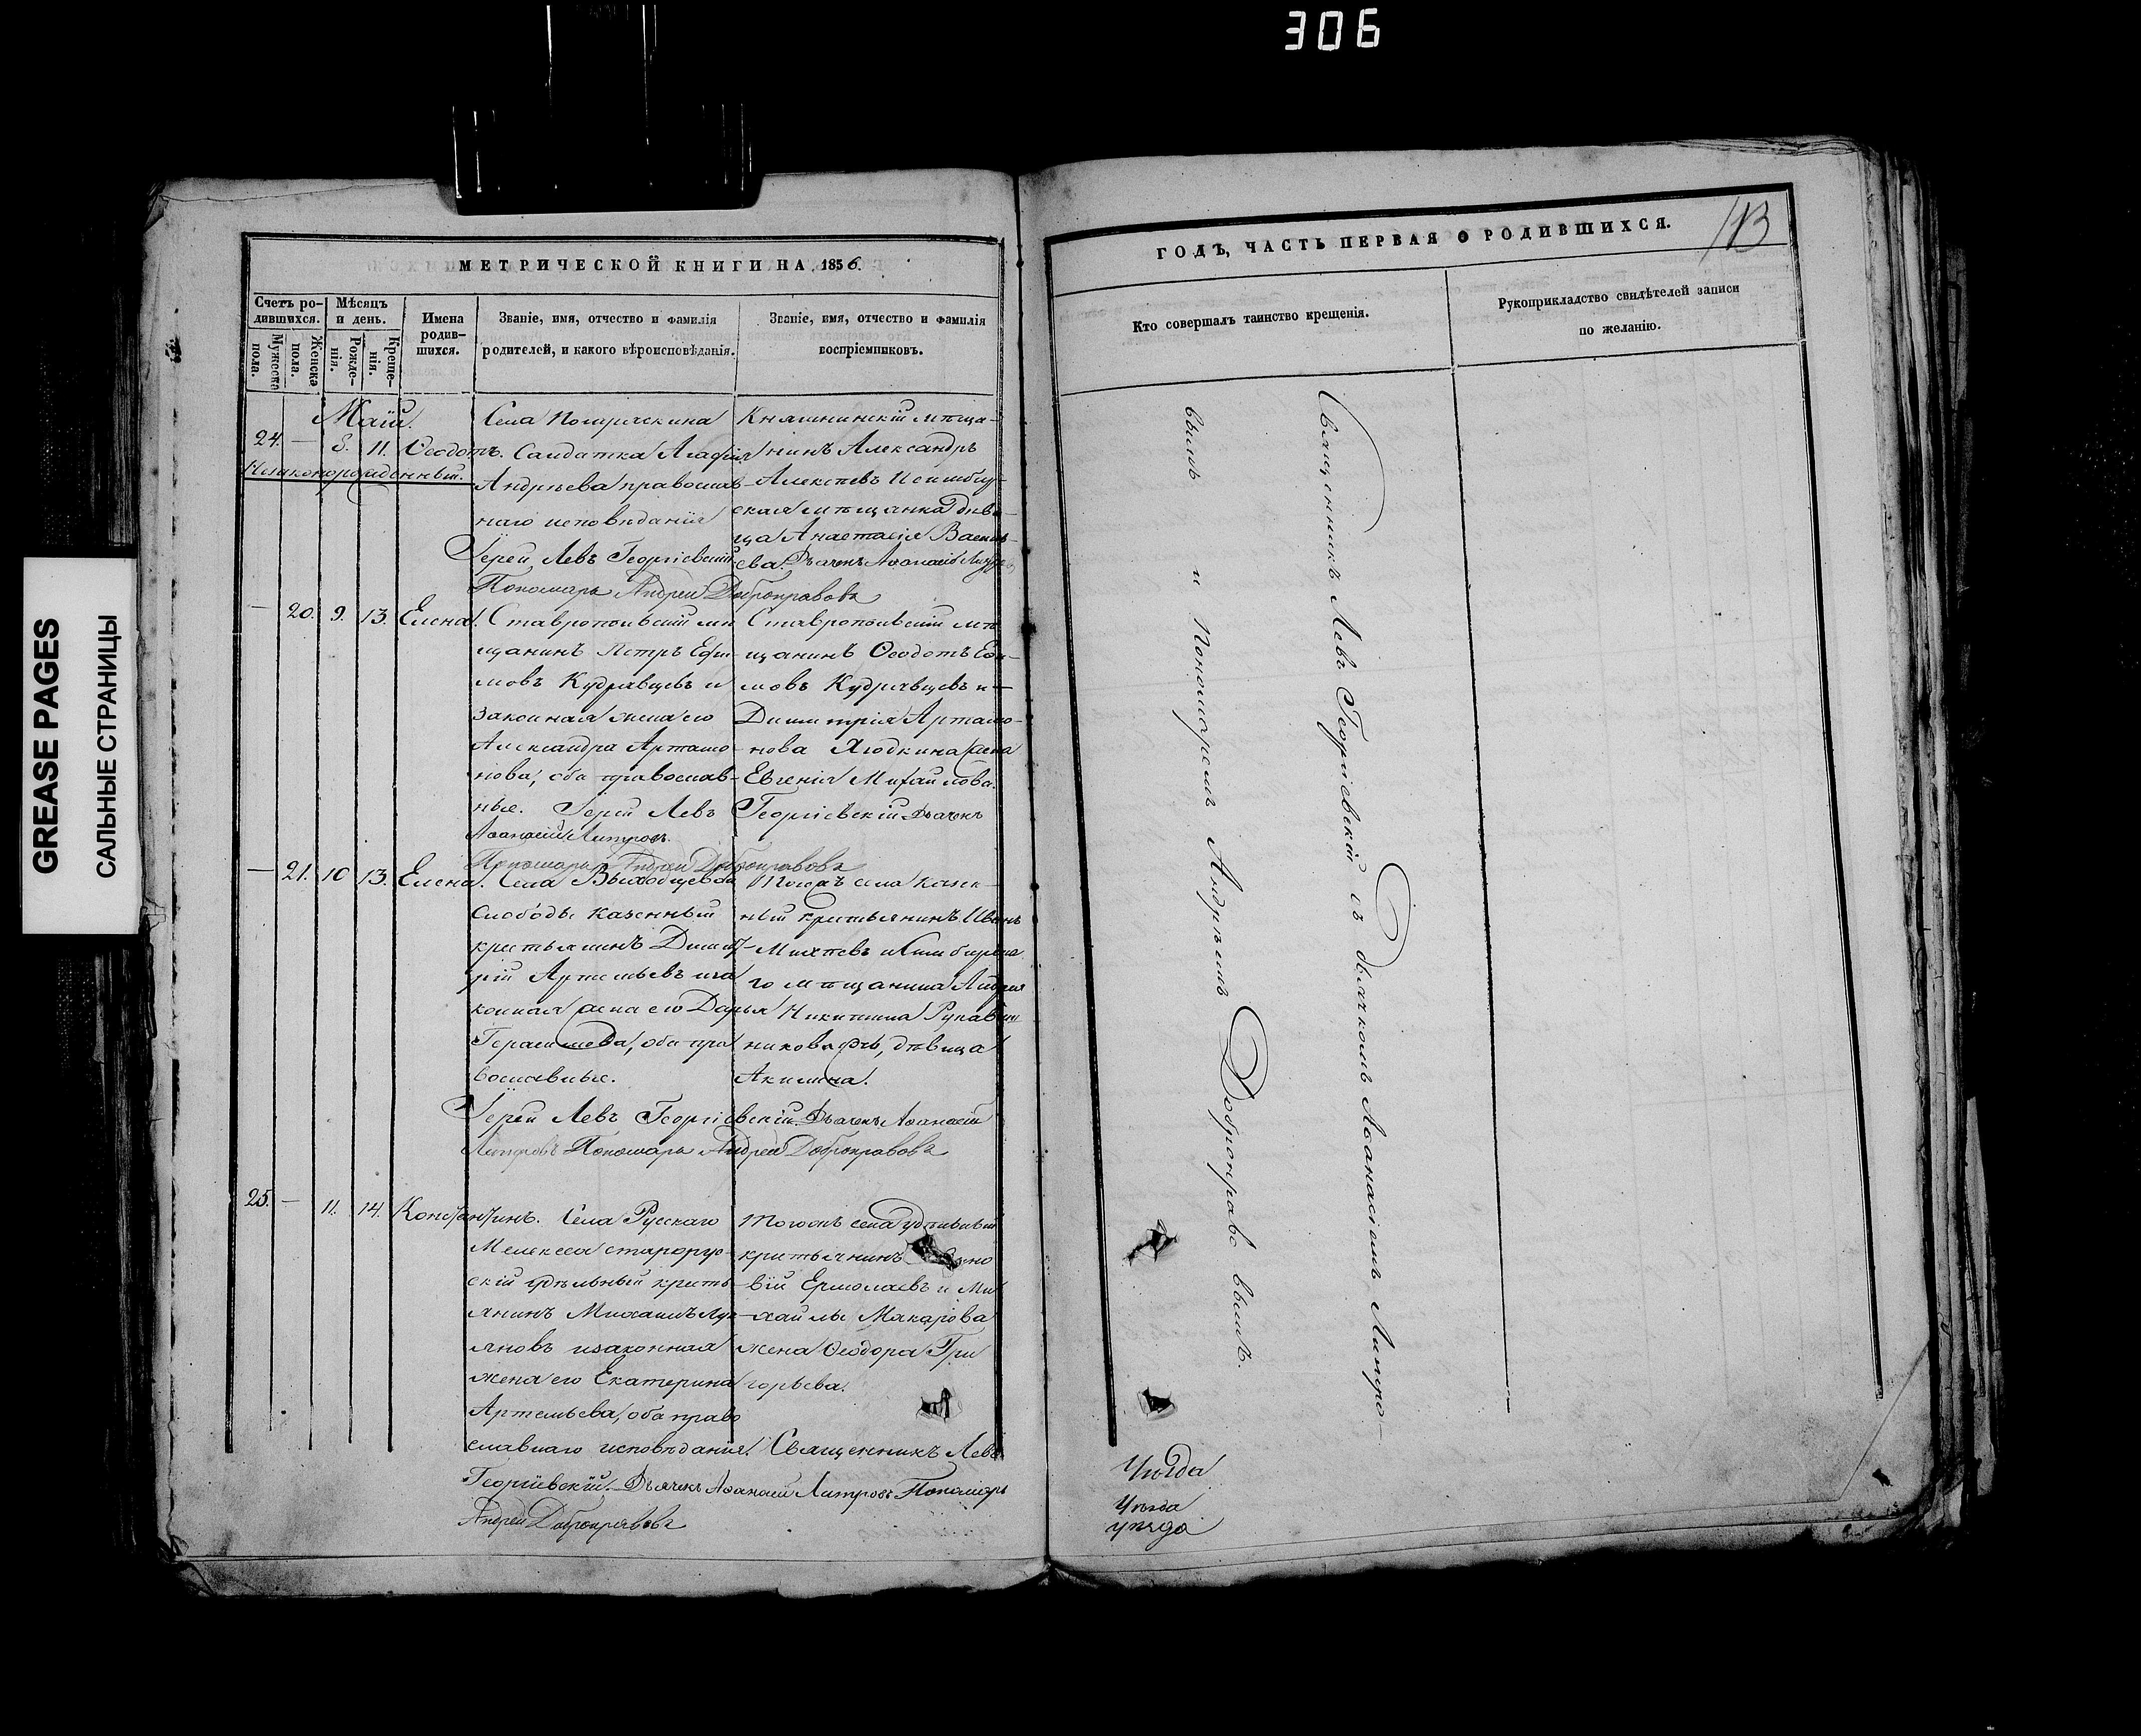 306
GREASE PAGES
САЛЬНЫЕ СТРАНИЦЫ
МЕТРИЧЕСКОЙ КНИГИ НА 1856.
Счетъ ро-
дившихся.
Мужеска
пола.
Женска
пола.
Мѣсяцъ
и день.
Рожде-
нія.
Креще-
нія.
Имена
родив-
шихся.
Званіе, имя, отчество и фамилія
родителей, и какого вѣроисповѣданія.
Званіе, имя, отчество и фамилія
воспріемниковъ.
Маій.
24. — 8. 11. Ѳеодотъ.
Незаконорожденный.
Села
Салдатка Агафія
Андрѣева православ-
наго исповѣданія
Іерей Левъ Георгіевскій
Княгининскій мѣща-
нинъ Александръ
Алексѣевъ и симбир-
ская мѣщанка дѣви-
ца Анастасія Василь-
ева. Дьячекъ Аѳанасій
Пономарь Андрей Добронравовъ
— 20. 9. 13. Елена.
Ставропольскій мѣ
щанинъ Петръ Ефи-
мовъ Кудрявцевъ и
законная жена его
Александра Артамо-
нова, оба православ-
ные. Іерей Левъ Георгіевскій Дьячекъ
Аѳанасій Лапровъ.
Пономарь Андрей Добронравовъ
Ставропольскій мѣ
щанинъ Ѳеодотъ Ефи-
мовъ Кудрявцевъ и
Димитрія Артамо-
нова Ягодкина жена
Евгенія Михайлова.
— 21. 10 13. Елена.
Села
Слободы казенный
крестьянинъ Димит-
рій Артемьевъ и за
конная жена его Дарья
Герасимова, оба пра
вославные.
Тогожъ села казен-
ный крестьянинъ Иванъ
Михѣевъ и Симбирска
го мѣщанина Андрея
Никитина Рукавиш
никова дочь, дѣвица
Акилина.
Іерей Левъ Георгіевскій. Дьячекъ Аѳанасій
Лапровъ Пономарь Андрей Добронравовъ
25. — 11. 14. Константинъ.
Села Русскаго
Мелекеса старорус-
скій удѣльный кресть-
янинъ Михаилъ Лук-
яновъ и законная
жена его Екатерина
Артемьева, оба право
славнаго исповѣданія. Священникъ Левъ
Георгіевскій. Дьячекъ Аѳанасій Лапровъ Пономарь
Андрей Добронравовъ
Тогожъ села удѣльный
крестьянинъ
вій Ермолаевъ и Ми
хайлы Макарова
жена Ѳеодора Гри
горьева.
ГОДЪ, ЧАСТЬ ПЕРВАЯ О РОДИВШИХСЯ.
113
Кто совершалъ таинство крещенія.
Рукоприкладство свидѣтелей записи
по желанію.
Священникъ Левъ Георгіевскій съ Дьячкомъ Аѳанасіемъ Лапро-
вымъ и Пономаремъ Андреемъ Добронраво вымъ.
Уѣзда
Уѣзда
уѣзда